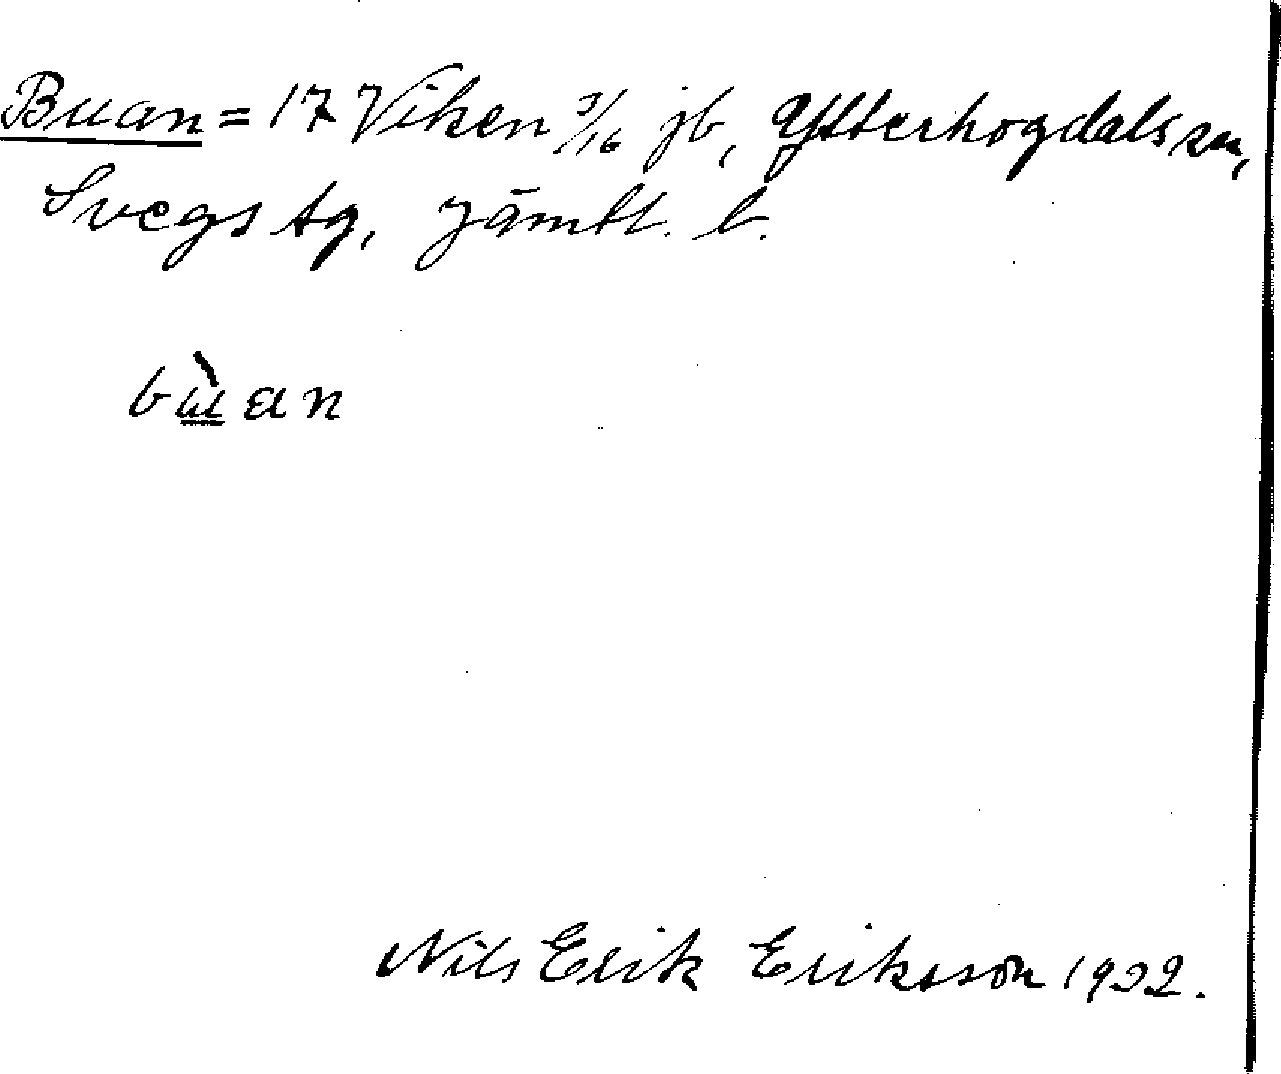 Buan = 17 Viken 3/16 jb, Ytterhogdals sn,
Svegs tg, Jämtl. l.
bùan
Nils Erik Eriksson 1932.